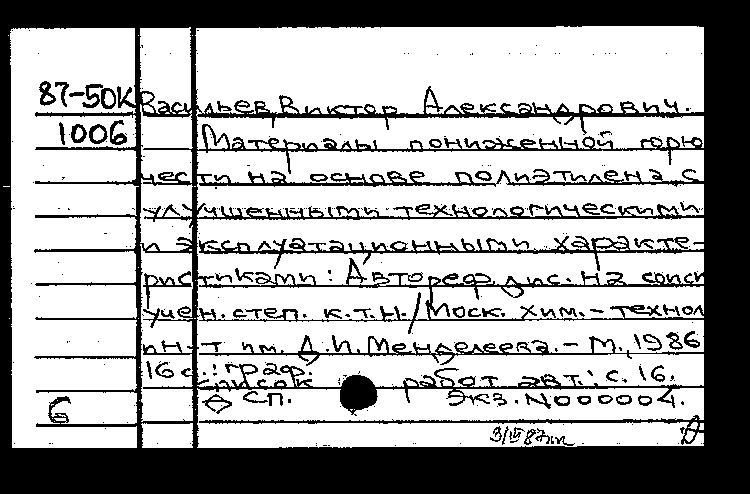 87-50К Васильев, Виктор Александрович.
1006 Материалы пониженной горю
чести на основе полиэтилена с
улучшенными технологическими
и эксплуатационными характе-
ристиками: Автореф. дис. на соиск
учен. степ. к.т.н./Моск. хим.-технол
ин-т им. Д.И. Менделеева. - М., 1986
16 с.: граф.
список работ авт.: с. 16.
6 СП. Экз. N000004.